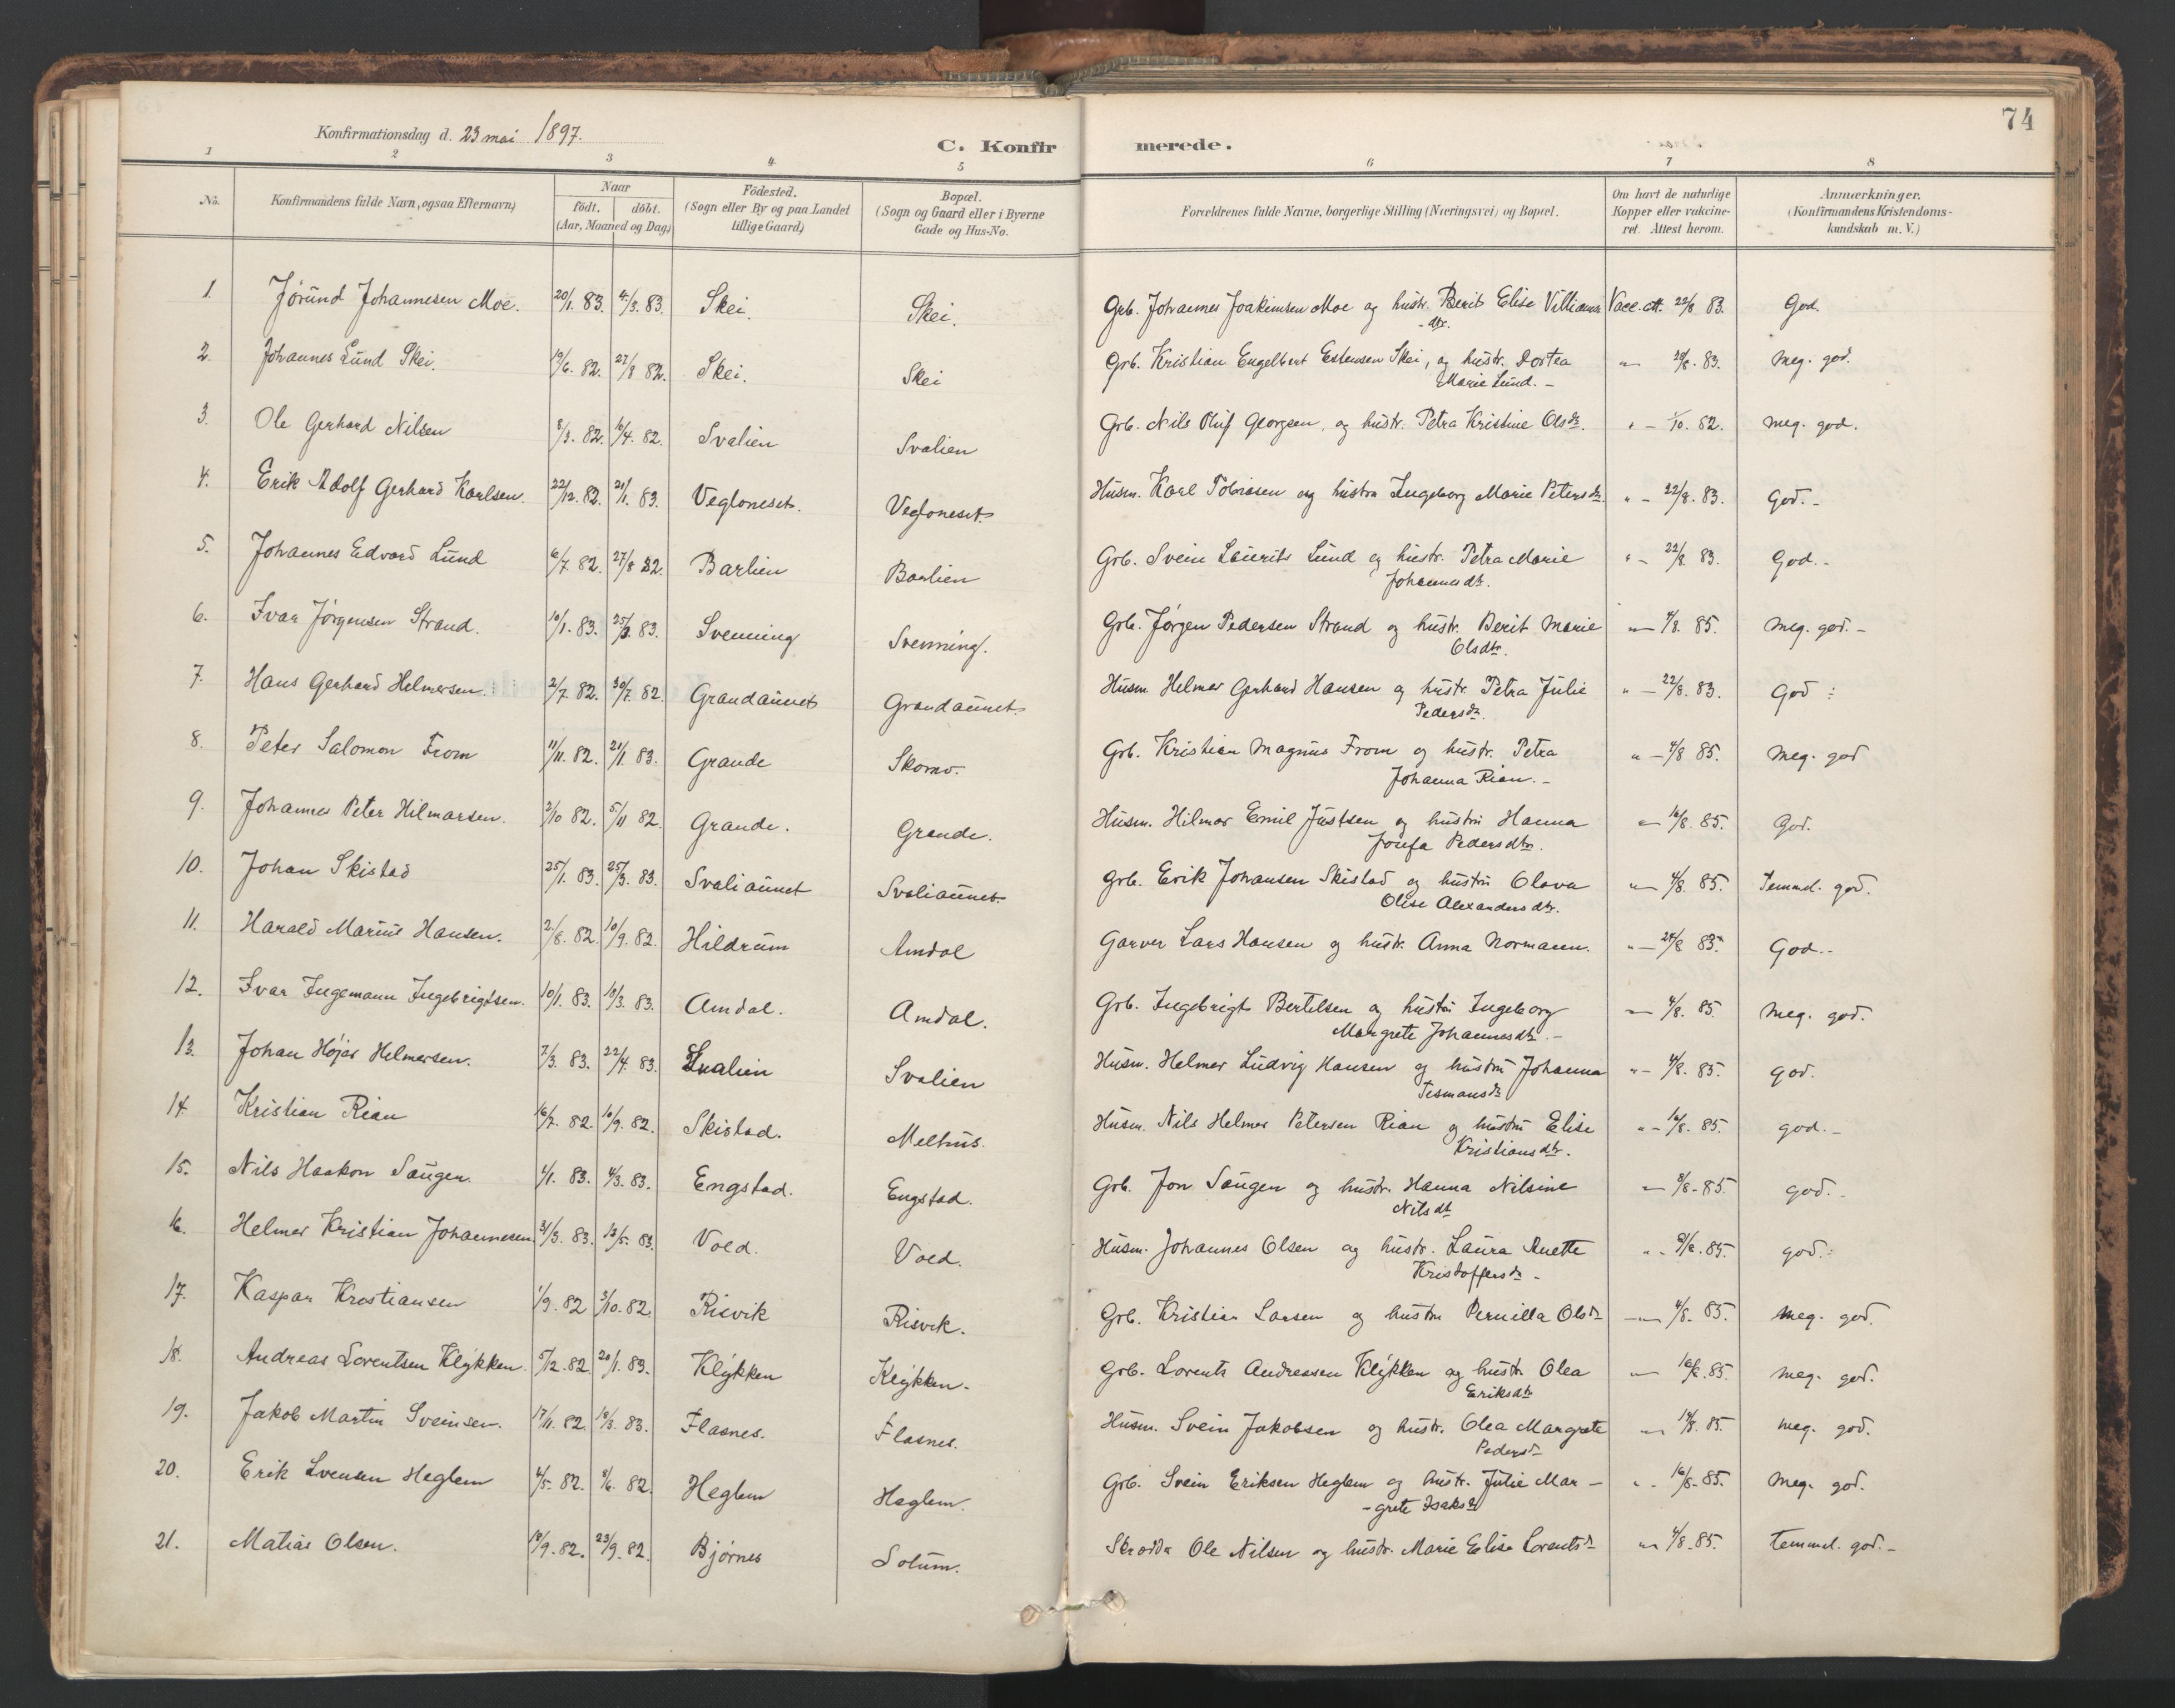 74
Konfirmationsdag d. 23 mai 1897.
C. Konfirmerede.
1 2 3 4 5 6 7 8
No.
Konfirmandens fulde Navn, ogsaa Efternavn)
Naar
födt. döbt.
(Aar, Maaned og Dag)
Födested.
(Sogn eller By og paa Landet
tillige Gaard)
Bopæl.
(Sogn og Gaard eller i Byerne
Gade og Hus-No.
Forældrenes fulde Navne, borgerlige Stilling (Næringsvei) og Bopæl.
Om havt de naturlige
Kopper eller vakcine-
ret. Attest herom.
Anmærkninger.
(Konfirmandens Kristendoms-
kundskab m. V.)
1. Jørund Johannesen Moe. 20/1. 83. 4/3. 83. Skei. Skei. Grb. Johannes Joakimsen Moe og hustr. Berit Elise Villiams Vacc. att. 22/8 83. God.
-dtr.
2. Johannes Lund Skei. 19/6. 82. 27/8 82. Skei. Skei Grb. Kristian Engelbert Estensen Skei, og hustr. Dortea " 83. Meg. god.
Marie Lund. -
3. Ole Gerhard Nilsen 8/3. 82. 16/4. 82. Svalien Svalien Grb. Nils Oluf Georgsen, og hustr. Petra Kristine Olsdr. " - 1/10. 82. meg. god.
4. Erik Adolf Gerhard Karlsen. 22/12. 82. 21/1. 83. Vegloneset. Vegloneset. Husm. Karl Tobiasen og hustru Ingeborg Marie Petersdr. " - 22/8. 83. God. -
5. Johannes Edvard Lund 6/7 82. 27/8 82. Barlien Barlien Grb. Svein Laurits Lund og hustr. Petra Marie " - 22/8. 83. God. -
Johannesdtr.
6. Ivar Jørgensen Strand. 10/1. 83. 25/3. 83. Svenning Svenning. Grb. Jørgen Pedersen Strand og hustr. Berit Marie " 4/8. 85. Meg. god. -
Olsdtr.
7. Hans Gerhard Helmersen. 2/7 82. 30/7. 82. Grandaunet Grandaunet. Husm. Helmer Gerhard Hansen og hustr. Petra Julie " - 22/8. 83. God
Pedersdr.
8. Peter Salomon From 11/11. 82. 21/1. 83. Grande Skomo. Grb. Kristian Magnus From og hustr. Petra " - 4/8 85. Meg. god
Johanna Rian. -
9. Johannes Peter Hilmarsen. 2/10 82. 5/11 82. Grande. Grande. Husm. Hilmar Emil Justsen og hustru Hanna " 16/8. 85. God.
Josefa Pedersdtr.
10. Johan Skistad 25/1. 83. 25/3. 83. Svaliaunet Svaliaunet. Grb. Erik Johansen Skistad og hustru Olava " 4/8. 85. Temmel. god.
Olise Alexandersdtr.
11. Harald Marius Hansen. 2/8. 82. 10/9. 82. Hildrum Amdal Garver Lars Hansen og hustr. Anna Normann. " - God. -
12. Ivar Ingemann Ingebrigtsen. 10/1. 83. 83. Amdal. Amdal. Grb. Ingebrigt Bertelsen og hustru Ingeborg " 4/8. 85. Meg. god.
Margrete Johannesdtr. -
13. Johan Højar Helmersen. 7/3. 83. 22/4. 83. Svalien Svalien Husm. Helmer Ludvig Hansen og hustru Johanna " - 4/8. 85. god.
Tesmansdr.
14. Kristian Rian 16/7. 82. 10/9. 82. Skistad. Melhus. Husm. Nils Helmer Petersen Rian og hustru Elise " - 16/8. 85. god. -
Kristiansdtr.
15. Nils Haakon Saugen. 4/1. 83. 4/3. 83. Engstad. Engstad. Grb. Jon Saugen og hustr. Hanna Nilsine " 85. god. -
Nilsdt
16. Helmer Kristian Johannesen. 31/3. 83. 13/5. 83. Vold. Vold. Husm. Johannes Olsen og hustr. Laura Anette " 85. god. -
Kristoffersdr. -
17. Kaspar Kristiansen 1/9. 82 82. Risvik Risvik. Grb. Kristian Larsen og hustru Pernilla Olsdr " 4/8. 85. Meg. god.
18. Andreas Lorentsen Klykken. 5/12. 82. 83. Klykken Klykken. Grb. Lorents Andreassen Klykken og hustr. Olea " 16/8. 85. Meg. god.
Eriksdtr
19. Jakob Martin Sveinsen. 17/11. 82. 18/3. 83. Flasnes. Flasnes. Husm. Svein Jakobsen og hustr. Olea Margrete " 85. meg. god.
Pedersdr
20. Erik Svensen Heglem 4/5. 82. 82. Heglem Heglem. Grb. Svein Eriksen Heglem og hustr. Julie Mar - " 16/8. 85. Meg. god.
- grete Isaksdr
21. Matias Olsen. 82. 23/9. 82. Bjørnes Solum. Skrædder Ole Nilsen og hustr. Marie Elise Lorentsdr " 4/8. 85. temmel. god. -